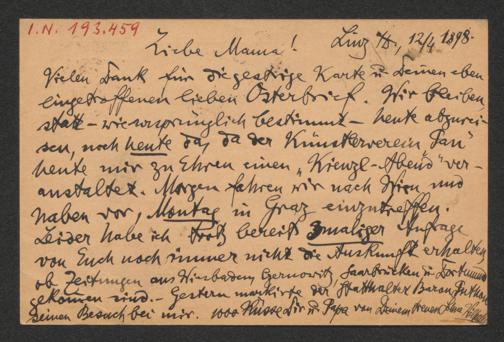 I.N. 193.459
Linz a/D., 12/4 1898.
Liebe Mama!
Vielen Dank für die gestrige Karte u. Deinen eben
eingetroffenen lieben Osterbrief. Wir bleiben
statt – wie ursprünglich bestimmt – heute abzurei-
sen, noch heute da, da der Künstlerverein
heute mir zu Ehren einen „Kienzl-Abend" ver-
anstaltet. Morgen fahren wir nach Wien und
haben vor, Montag in Graz einzutreffen.
Leider habe ich trotz bereits 3maliger Anfrage
von Euch noch immer nicht die Auskunft erhalten
ob Zeitungen aus Wiesbaden, Czernowitz, Saarbrücken u. Dortmund
gekommen sind. – Gestern markierte der Statthalter Baron
seinen Besuch bei mir. 1000 Küsse Dir u. Papa von Deinem treuen